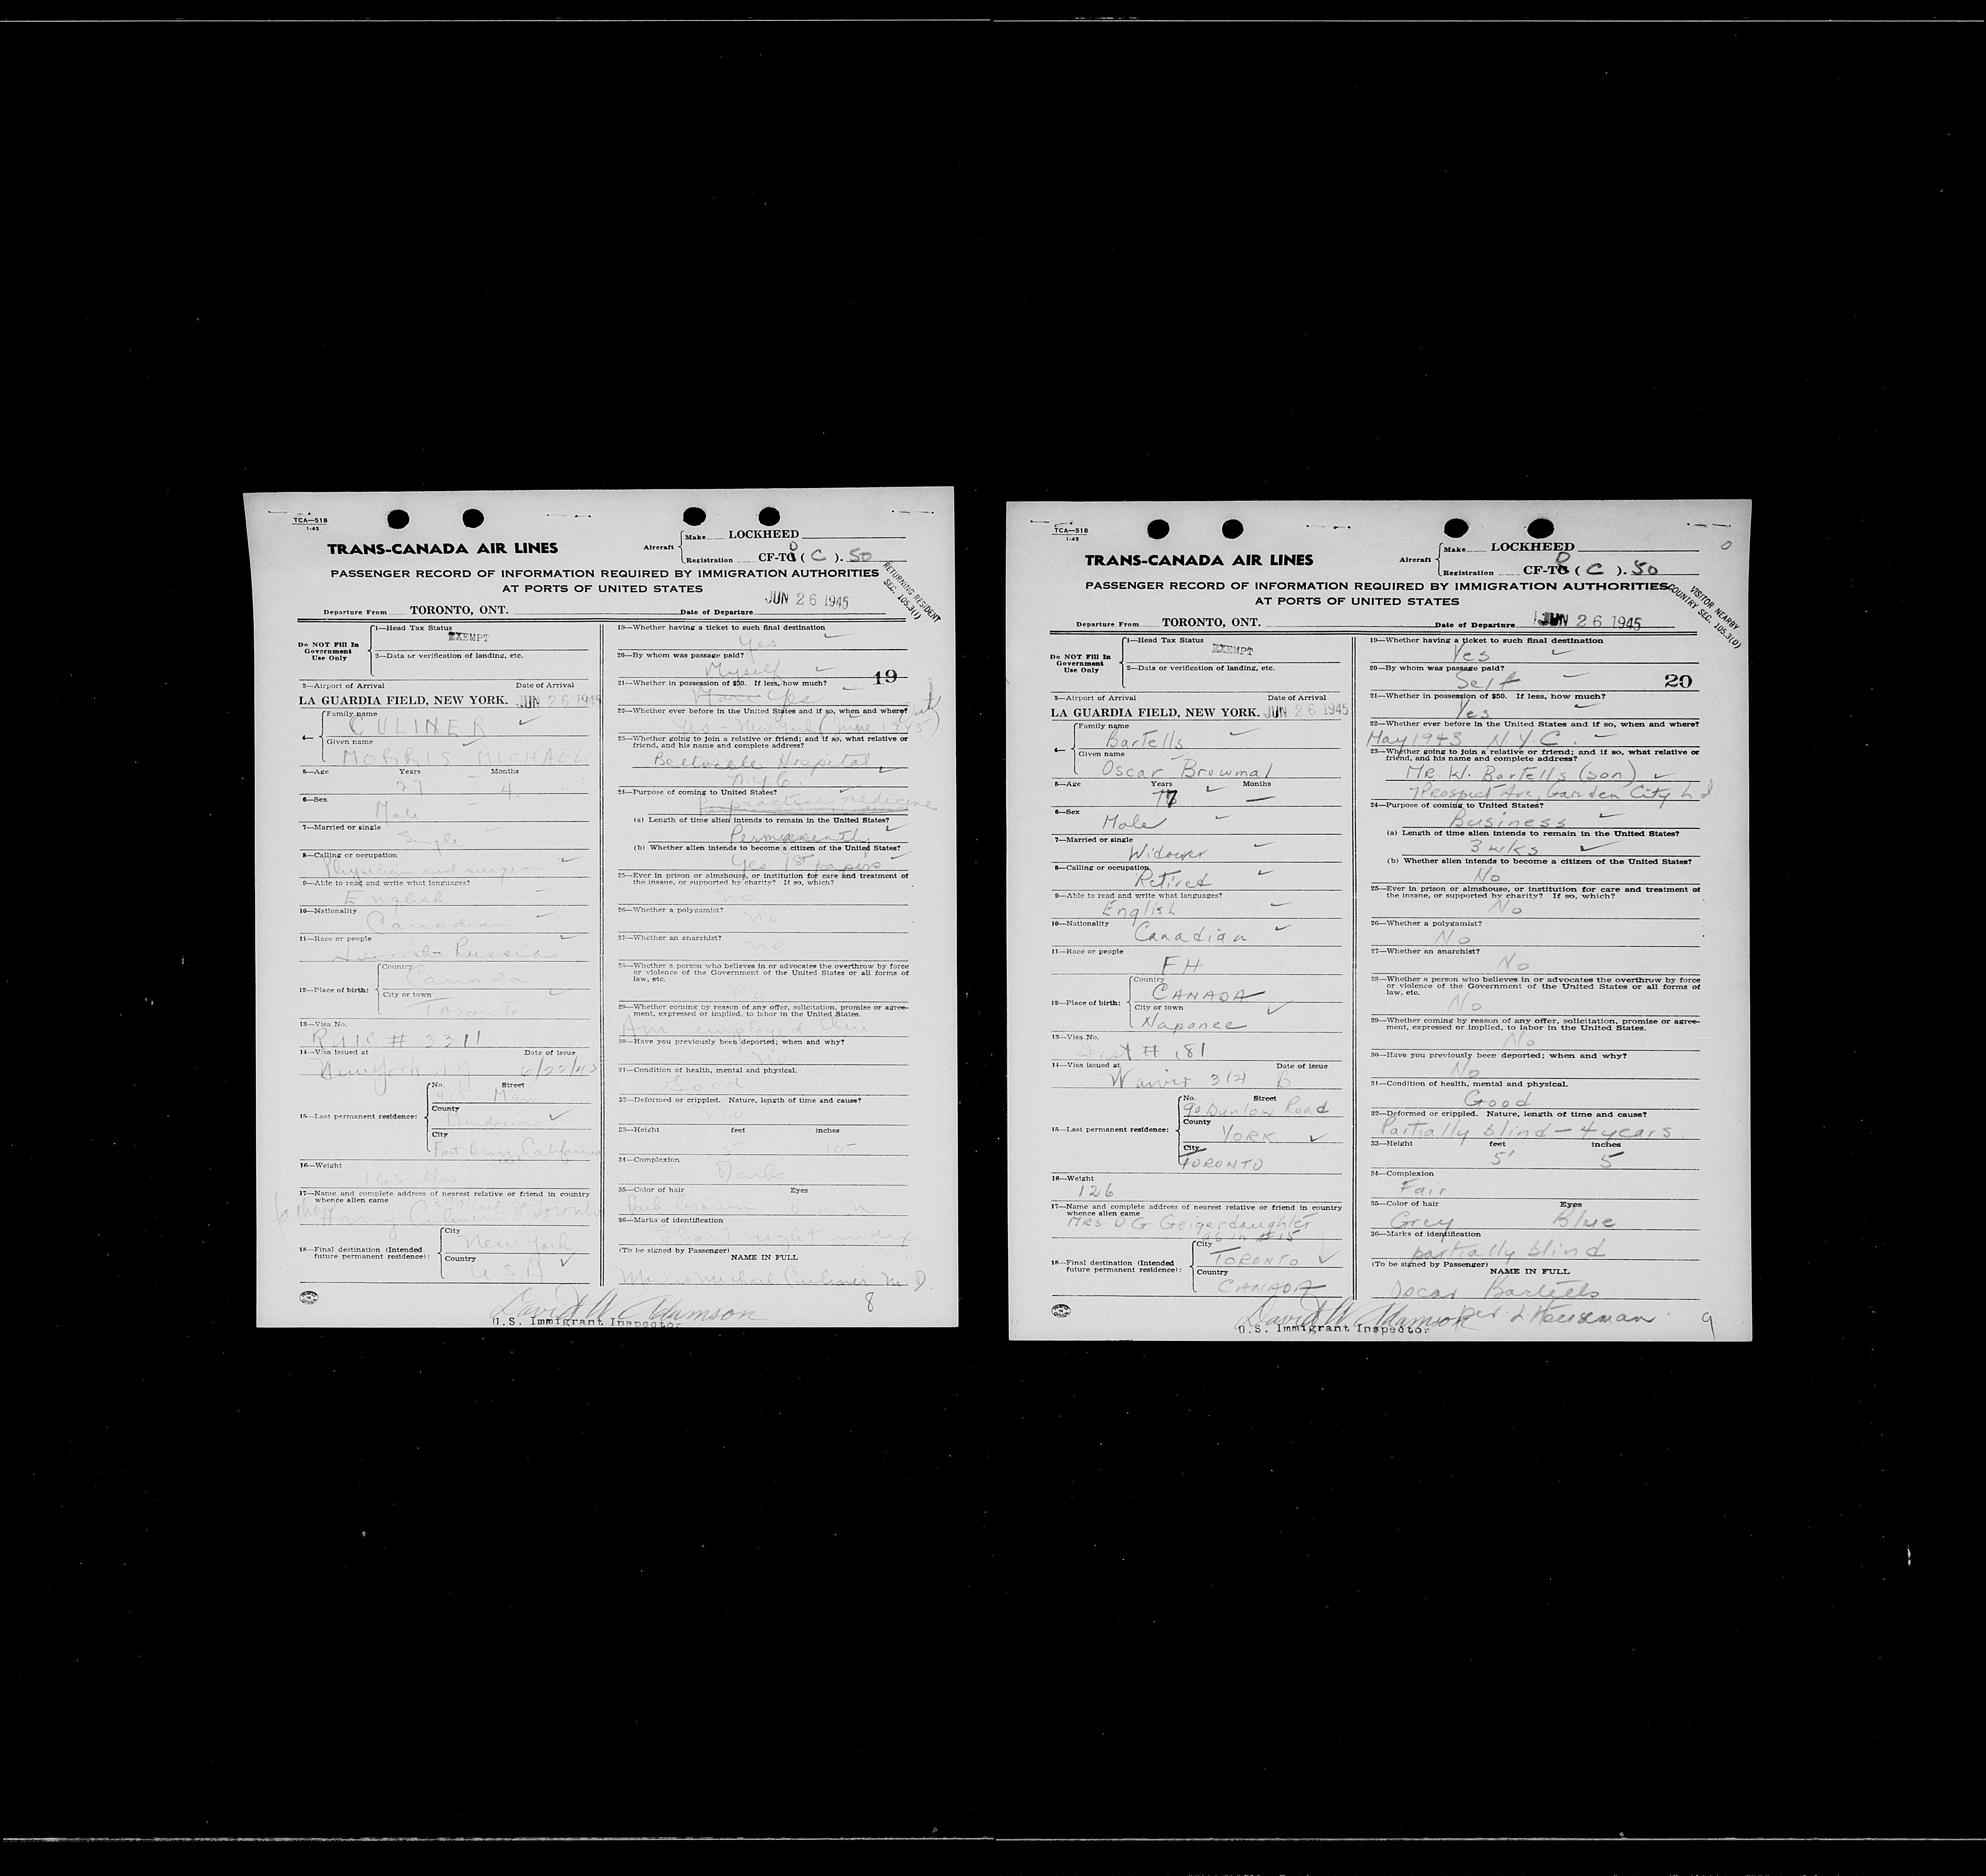 TCA—518
1-45
TRANS-CANADA AIR LINES
Aircraft
Make LOCKHEED
Registration CF-TC D ( C ). 50
PASSENGER RECORD OF INFORMATION REQUIRED BY IMMIGRATION AUTHORITIES
AT PORTS OF UNITED STATES
RETURNING RESIDENT
SEC. 105.3(1)
Departure From TORONTO, ONT. Date of Departure JUN 26 1945
Do NOT Fill In
Government
Use Only
1—Head Tax Status
EXEMPT
2—Data or verification of landing, etc.
3—Airport of Arrival Date of Arrival
LA GUARDIA FIELD, NEW YORK. JUN 26 1945
4—
Family name
CULINER
Given name
MORRIS MICHAEL
5—Age Years Months
27 4
6—Sex
Male
7—Married or single
Single
8—Calling or occupation
Physician and surgeon
9—Able to read and write what languages?
English
10—Nationality
Canadian
11—Race or people
Russia
12—Place of birth:
Country
Canada
City or town
Toronto
13—Visa No.
# 3311
14—Visa issued at Date of issue
New York NY 6/22/45
15—Last permanent residence:
No. Street
Main
County
Mendocino
City
Fort Bragg, California
16—Weight
165 lbs
17—Name and complete address of nearest relative or friend in country
whence alien came
father Harry Culiner Toronto
18—Final destination (Intended
future permanent residence):
City
New York
Country
USA
19—Whether having a ticket to such final destination
Yes
20—By whom was passage paid?
Myself
19
21—Whether in possession of $50. If less, how much?
Yes
22—Whether ever before in the United States and if so, when and where?
Yes - New York (June 1945)
23—Whether going to join a relative or friend; and if so, what relative or
friend, and his name and complete address?
Hospital
N.Y.C.
24—Purpose of coming to United States?
practice medicine
(a) Length of time alien intends to remain in the United States?
Permanently
(b) Whether alien intends to become a citizen of the United States?
Yes 1st papers
25—Ever in prison or almshouse, or institution for care and treatment of
the insane, or supported by charity? If so, which?
no
26—Whether a polygamist?
no
27—Whether an anarchist?
no
28—Whether a person who believes in or advocates the overthrow by force
or violence of the Government of the United States or all forms of
law, etc.
no
29—Whether coming by reason of any offer, solicitation, promise or agree-
ment, expressed or implied, to labor in the United States.
Am employed there
30—Have you previously been deported; when and why?
no
31—Condition of health, mental and physical.
Good
32—Deformed or crippled. Nature, length of time and cause?
no
33—Height feet inches
5 10
34—Complexion
Dark
35—Color of hair Eyes
Dark brown Brown
36—Marks of identification
right index
(To be signed by Passenger)
NAME IN FULL
Morris Michael Culiner M.D.
David W Adamson
U.S. Immigrant Inspector
8
TCA—518
1-45
TRANS-CANADA AIR LINES
Aircraft
Make LOCKHEED
Registration CF-TC D ( C ). 50
0
PASSENGER RECORD OF INFORMATION REQUIRED BY IMMIGRATION AUTHORITIES
AT PORTS OF UNITED STATES
VISITOR NEARBY
COUNTRY SEC. 105.3(D)
Departure From TORONTO, ONT. Date of Departure JUN 26 1945
Do NOT Fill In
Government
Use Only
1—Head Tax Status
EXEMPT
2—Data or verification of landing, etc.
3—Airport of Arrival Date of Arrival
LA GUARDIA FIELD, NEW YORK. JUN 26 1945
4—
Family name
Bartells
Given name
Oscar Browmal
5—Age Years Months
77 —
6—Sex
Male
7—Married or single
Widower
8—Calling or occupation
Retired
9—Able to read and write what languages?
English
10—Nationality
Canadian
11—Race or people
FH
12—Place of birth:
Country
CANADA
City or town
Napanee
13—Visa No.
# 181
14—Visa issued at Date of issue
Waiver 3(2) B
15—Last permanent residence:
No. Street
90 Dunlow Road
County
YORK
City
TORONTO
16—Weight
126
17—Name and complete address of nearest relative or friend in country
whence alien came
Mrs. D G. Geiger daughter
as in #15
18—Final destination (Intended
future permanent residence):
City
TORONTO
Country
CANADA
19—Whether having a ticket to such final destination
Yes
20—By whom was passage paid?
Self
20
21—Whether in possession of $50. If less, how much?
Yes
22—Whether ever before in the United States and if so, when and where?
May 1943 N.Y.C.
23—Whether going to join a relative or friend; and if so, what relative or
friend, and his name and complete address?
MR. W. Bartells (son)
7 Prospect Ave, Garden City L.I.
24—Purpose of coming to United States?
Business
(a) Length of time alien intends to remain in the United States?
3 wks
(b) Whether alien intends to become a citizen of the United States?
No
25—Ever in prison or almshouse, or institution for care and treatment of
the insane, or supported by charity? If so, which?
No
26—Whether a polygamist?
No
27—Whether an anarchist?
No
28—Whether a person who believes in or advocates the overthrow by force
or violence of the Government of the United States or all forms of
law, etc.
No
29—Whether coming by reason of any offer, solicitation, promise or agree-
ment, expressed or implied, to labor in the United States.
No
30—Have you previously been deported; when and why?
No
31—Condition of health, mental and physical.
Good
32—Deformed or crippled. Nature, length of time and cause?
Partially blind – 4 years.
33—Height feet inches
5' 5
34—Complexion
Fair
35—Color of hair Eyes
Grey Blue
36—Marks of identification
partially blind
(To be signed by Passenger)
NAME IN FULL
Oscar Bartells
per L Houseman
David W Adamson
U.S. Immigrant Inspector
9